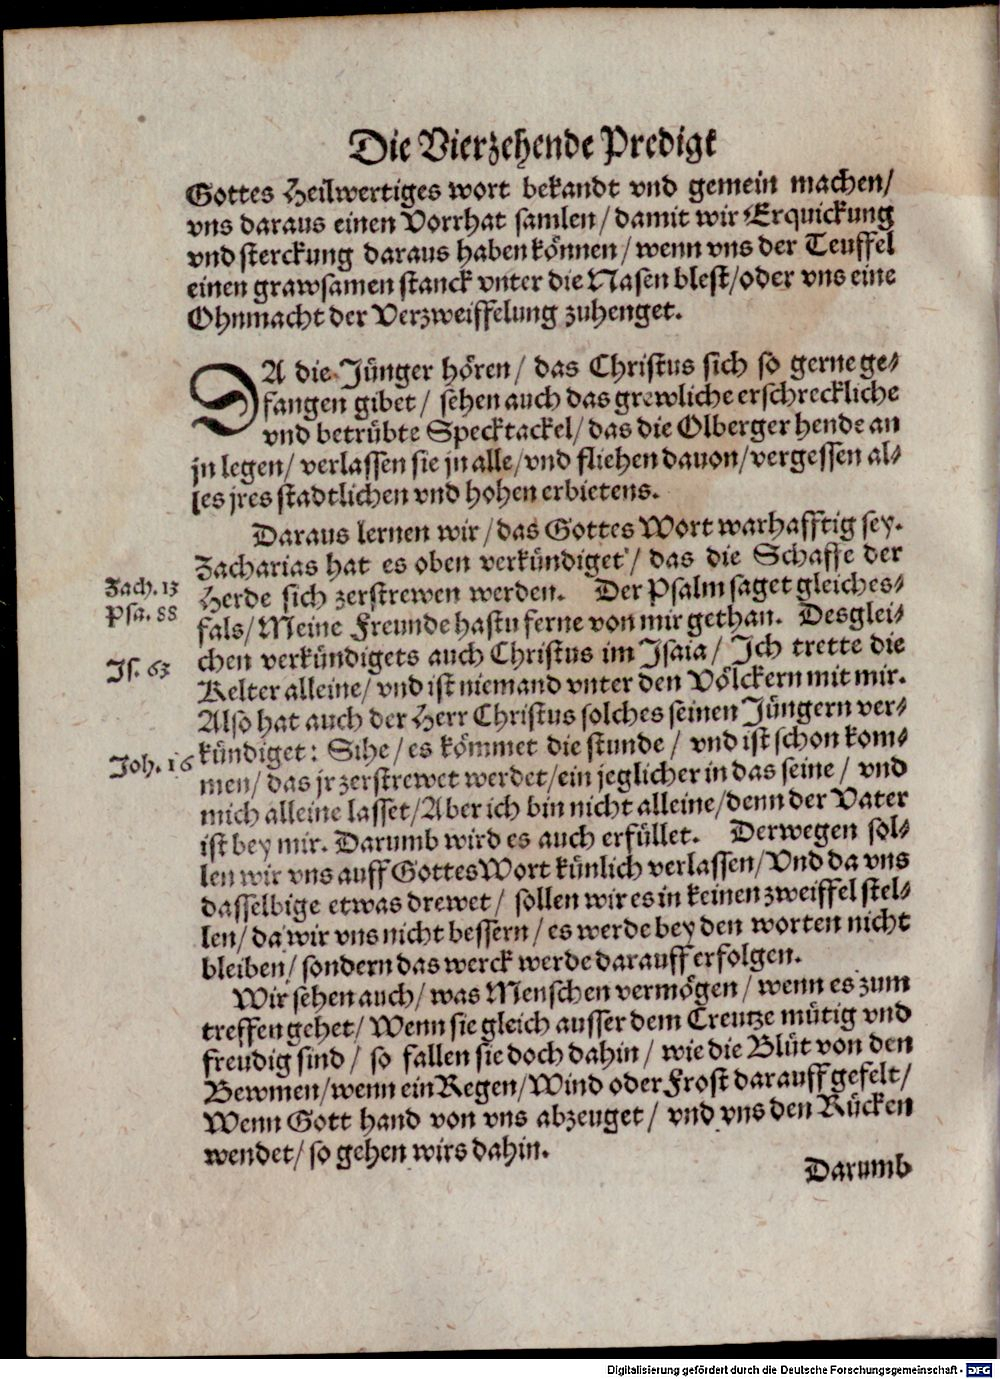 Die Vierzehende Predigt
Gottes Heilwertiges wort bekandt vnd gemein machen/
vns daraus einen Vorrhat samlen/ damit wir Erquickung
vnd sterckung daraus haben können/ wenn vns der Teuffel
einen grawsamen stanck vnter die Nasen blest/ oder vns eine
Ohnmacht der Verzweiffelung zuhenget.
DA die Jünger hören/ das Christus sich so gerne ge-
fangen gibet/ sehen auch das grewliche erschreckliche
vnd betrübte Specktackel/ das die Olberger hende an
jn legen/ verlassen sie jn alle/ vnd fliehen dauon/ vergessen al-
les jres stadtlichen vnd hohen erbietens.
Daraus lernen wir/ das Gottes Wort warhafftig sey.
Zacharias hat es oben verkündiget/ das die Schaffe der
Zach. 13
Herde sich zerstrewen werden. Der Psalm saget gleiches-
Psa. 88
fals/ Meine Freunde hastu ferne von mir gethan. Desglei-
chen verkündigets auch Christus im Isaia/ Ich trette die
Js. 63
Kelter alleine/ vnd ist niemand vnter den Völckern mit mir.
Also hat auch der Herr Christus solches seinen Jüngern ver-
kündiget: Sihe/ es kömmet die stunde/ vnd ist schon kom-
Joh. 16
men/ das jr zerstrewet werdet/ ein jeglicher in das seine/ vnd
mich alleine lasset/ Aber ich bin nicht alleine/ denn der Vater
ist bey mir. Darumb wird es auch erfüllet. Derwegen sol-
len wir vns auff Gottes Wort künlich verlassen/ Vnd da vns
dasselbige etwas drewet/ sollen wir es in keinen zweiffel stel-
len/ da wir vns nicht bessern/ es werde bey den worten nicht
bleiben/ sondern das werck werde darauff erfolgen.
Wir sehen auch/ was Menschen vermögen/ wenn es zum
treffen gehet/ Wenn sie gleich ausser dem Creutze mütig vnd
freudig sind/ so fallen sie doch dahin/ wie die Blüt von den
Bewmen/ wenn ein Regen/ Wind oder Frost darauff gefelt/
Wenn Gott hand von vns abzeuget/ vnd vns den Rücken
wendet/ so gehen wirs dahin.
Darumb
Digitalisierung gefördert durch die Deutsche Forschungsgemeinschaft - DFG